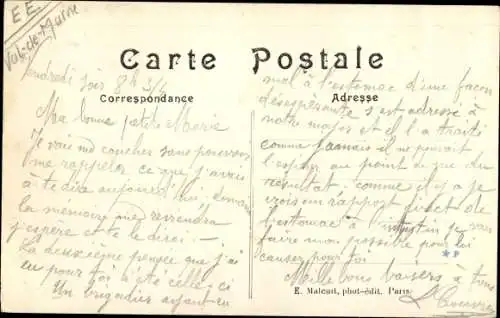 E E
Val-de-Marne
Carte Postale
Correspondance
Adresse
Vendredi soir 8h 3/4
Ma bonne petite Marie
Je vais me coucher sans pouvoir
me rappeler ce que j'avais
à te dire aujourd'hui, demain
la mémoire me reviendra
j'espère et te le dirai.
La deuxième pensée que j'ai
eu pour toi a été celle-ci
Un brigadier ayant eu
mal à l'estomac d'une façon
désespérante s'est adressé à
notre major et il l'a traité
comme jamais il ne pouvait
l'espérer au point de vue du
résultat, comme il y a je
crois un rapport direct de
l'estomac à intestin je vais
faire mon possible pour lui
causer pour toi
Mille bons baisers à
E. Malcuit, phot-édit. Paris